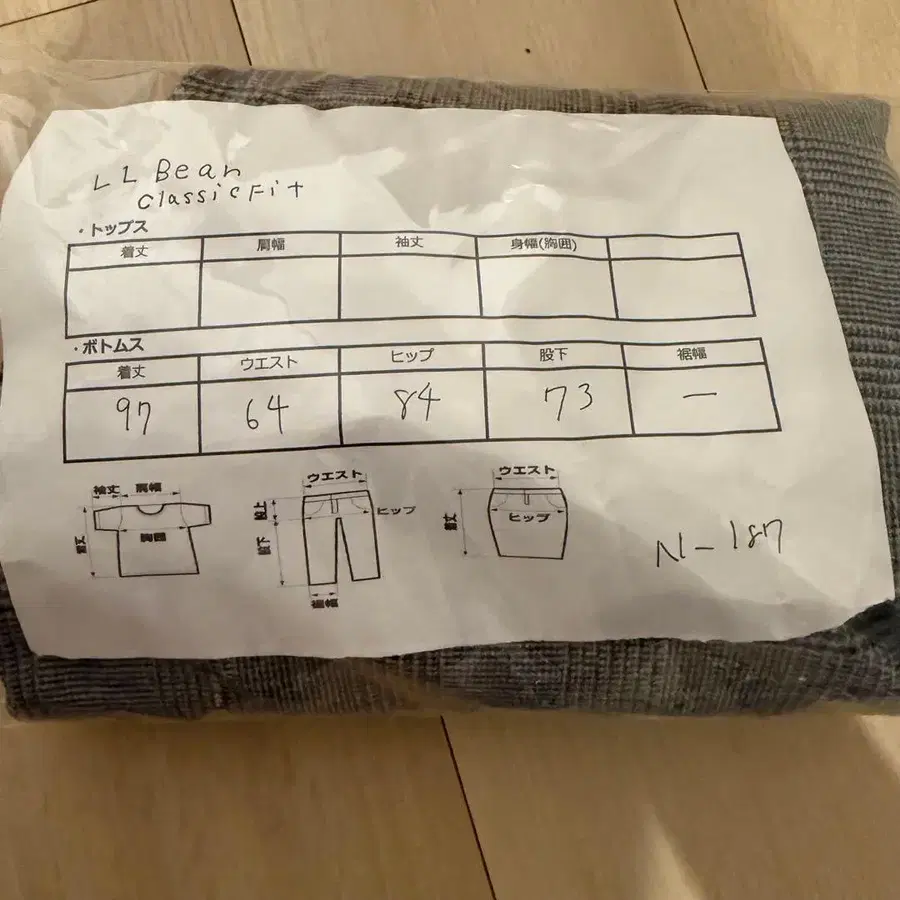 LL Bean
classic Fit
・トップス
着丈 肩幅 袖丈 身幅(胸囲)
・ボトムス
着丈 ウエスト ヒップ 股下 裾幅
97 64 84 73 ー
袖丈 肩幅
着丈
胸囲
ウエスト
股上
ヒップ
股下
裾幅
ウエスト
着丈
ヒップ
N-187